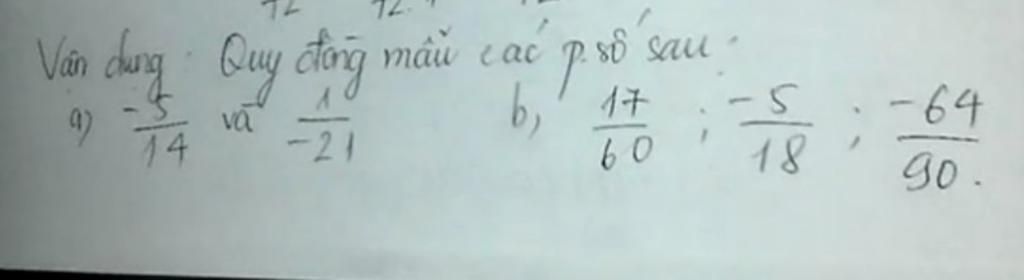 12 12.
Vận dụng : Quy đồng mẫu các p.số sau :
a) -5/14 và 1/-21 b, 17/60 ; -5/18 ; -64/90.